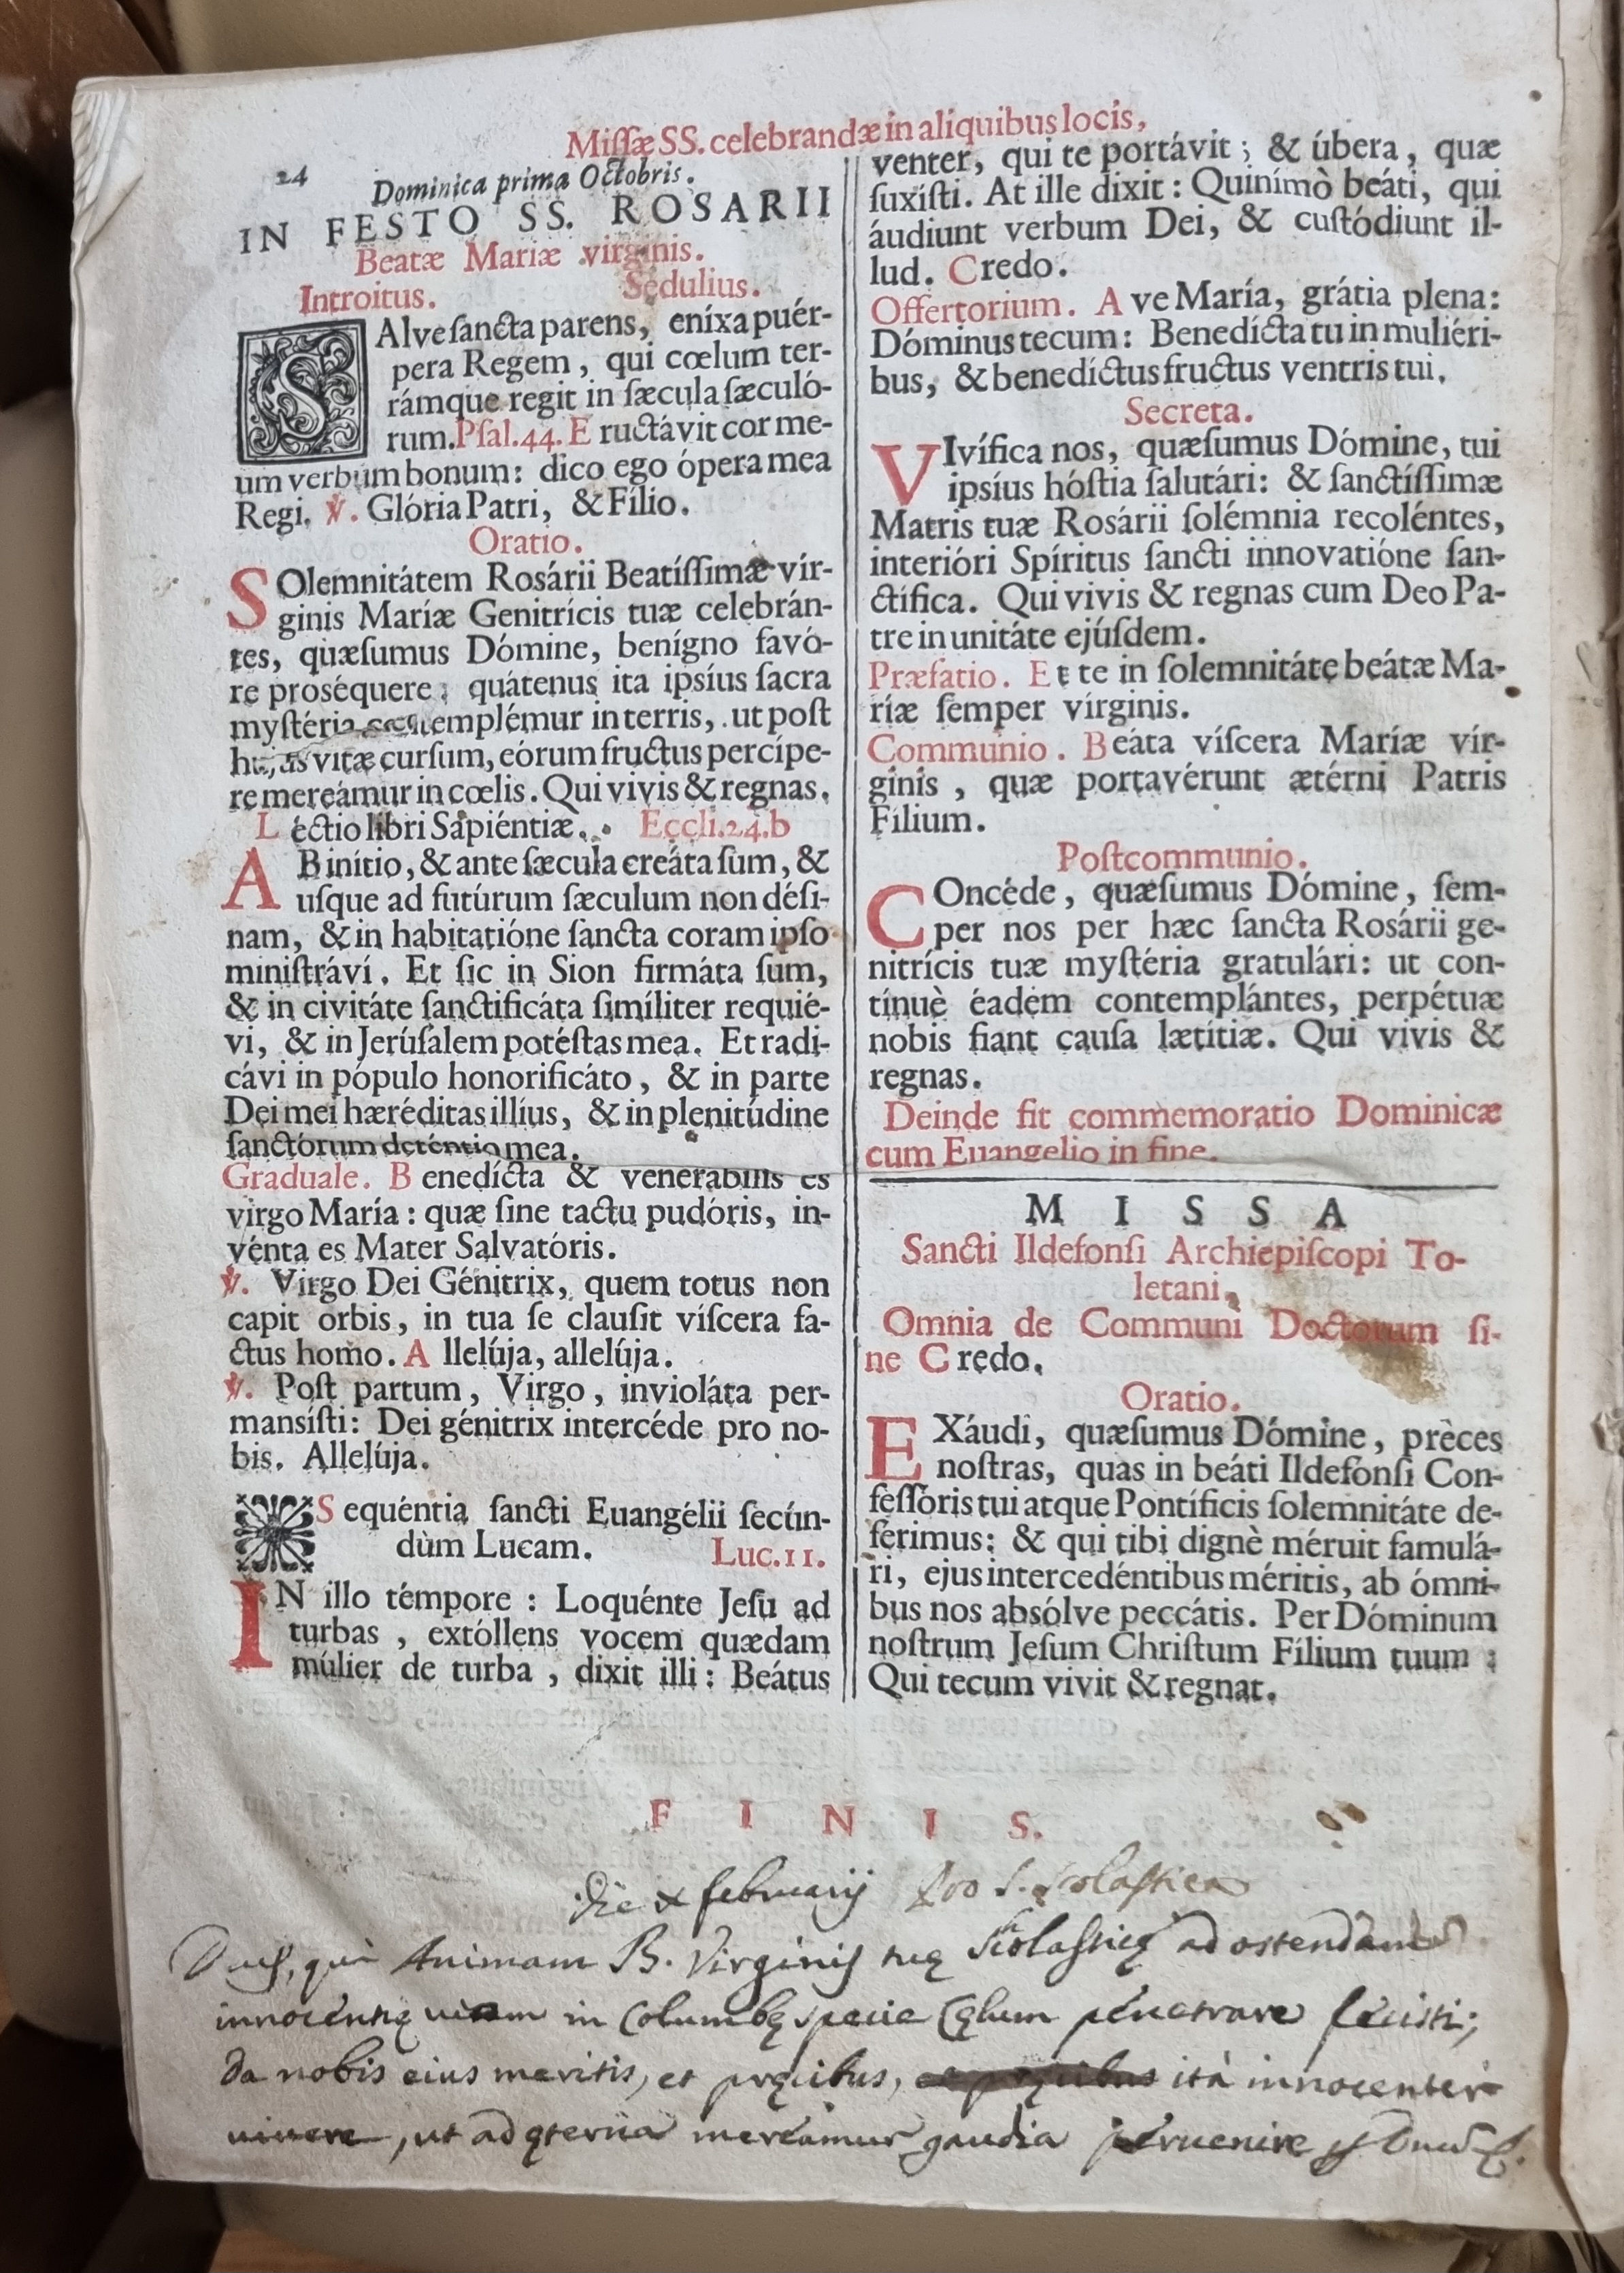 Miſſæ SS. celebrandæ in aliquibus locis,
24
Dominica prima Octobris.
IN FESTO SS. ROSARII
Beatæ Mariæ virginis.
Introitus. Sedulius.
SAlve ſancta parens, eníxa puér-
pera Regem, qui cœlum ter-
rámque regit in ſæcula ſæculó-
rum. Pſal. 44. Eructávit cor me-
um verbum bonum: dico ego ópera mea
Regi. ℣. Glória Patri, & Fílio.
Oratio.
SOlemnitátem Rosárii Beatíſſimæ vír-
ginis Maríæ Genitrícis tuæ celebrán-
tes, quæſumus Dómine, benígno favó-
re proséquere; quátenus ita ipsíus ſacra
myſtéria contemplémur in terris, ut poſt
hujus vitæ curſum, eórum fructus percípe-
re mereámur in cœlis. Qui vivis & regnas.
Léctio libri Sapiéntiæ. Eccli. 24. b
AB inítio, & ante ſæcula creáta ſum, &
uſque ad futúrum ſæculum non déſi-
nam, & in habitatióne ſancta coram ipſo
miniſtrávi. Et ſic in Sion firmáta ſum,
& in civitáte ſanctificáta ſimíliter requié-
vi, & in Jerúſalem potéſtas mea. Et radi-
cávi in pópulo honorificáto, & in parte
Dei mei hæréditas illíus, & in plenitúdine
ſanctórum deténtio mea.
Graduale. Benedícta & venerabilis es
virgo María: quæ ſine tactu pudóris, in-
vénta es Mater Salvatóris.
℣. Virgo Dei Génitrix, quem totus non
capit orbis, in tua ſe clauſit víſcera fa-
ctus homo. Allelúja, allelúja.
℣. Poſt partum, Virgo, invioláta per-
mansíſti: Dei génitrix intercéde pro no-
bis. Allelúja.
Sequéntia ſancti Euangélii ſecún-
dùm Lucam. Luc. 11.
IN illo témpore: Loquénte Jeſu ad
turbas, extóllens vocem quædam
múlier de turba, dixit illi: Beátus
venter, qui te portávit; & úbera, quæ
ſuxíſti. At ille dixit: Quinímò beáti, qui
áudiunt verbum Dei, & cuſtódiunt il-
lud. Credo.
Offertorium. Ave María, grátia plena:
Dóminus tecum: Benedícta tu in muliéri-
bus, & benedíctus fructus ventris tui.
Secreta.
VIvífica nos, quæſumus Dómine, tui
ipsíus hóſtia ſalutári: & ſanctíſſimæ
Matris tuæ Rosárii ſolémnia recoléntes,
interióri Spíritus ſancti innovatióne ſan-
ctífica. Qui vivis & regnas cum Deo Pa-
tre in unitáte ejúſdem.
Præfatio. Et te in ſolemnitáte beátæ Ma-
ríæ ſemper vírginis.
Communio. Beáta víſcera Maríæ vír-
ginis, quæ portavérunt ætérni Patris
Fílium.
Poſtcommunio.
COncéde, quæſumus Dómine, ſem-
per nos per hæc ſancta Rosárii ge-
nitrícis tuæ myſtéria gratulári: ut con-
tínuè éadem contemplántes, perpétuæ
nobis fiant cauſa lætítiæ. Qui vivis &
regnas.
Deinde fit commemoratio Dominicæ
cum Euangelio in fine.
MISSA
Sancti Ildefonſi Archiepiſcopi To-
letani.
Omnia de Communi Doctorum ſi-
ne Credo.
Oratio.
EXáudi, quæſumus Dómine, prèces
noſtras, quas in beáti Ildefónſi Con-
feſſóris tui atque Pontíficis ſolemnitáte de-
férimus: & qui tibi dignè méruit famulá-
ri, ejus intercedéntibus méritis, ab ómni-
bus nos absólve peccátis. Per Dóminum
noſtrum Jeſum Chriſtum Fílium tuum:
Qui tecum vivit & regnat.
FINIS.
die x februarij Pro S. Scolastica
Deus, qui Animam B. Virginis tuę Scolasticę ad ostendam
innocentię uiam in Columbę specie Cęlum penetrare fecisti;
da nobis eius meritis, et pręcibus, ità innocenter
uiuere, ut ad ęterna mereamur gaudia peruenire